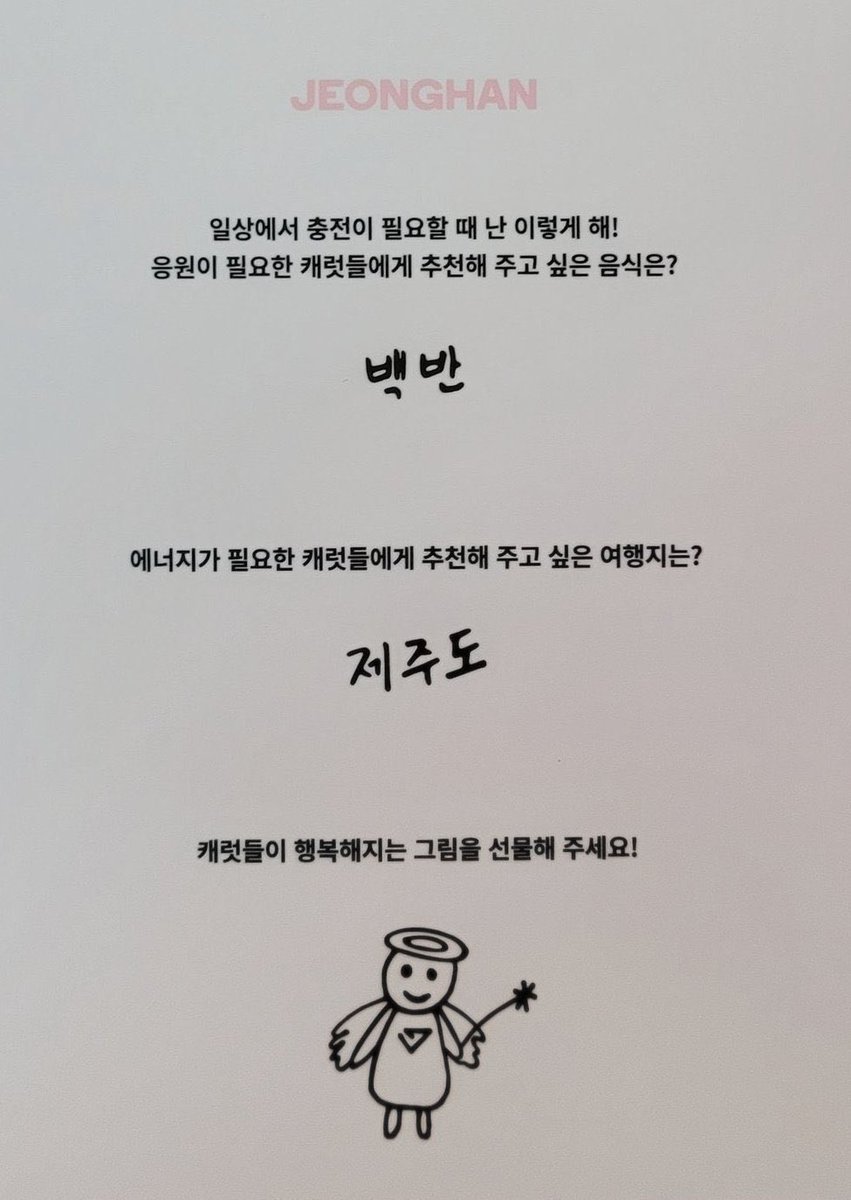 JEONGHAN
일상에서 충전이 필요할 때 난 이렇게 해!
응원이 필요한 캐럿들에게 추천해 주고 싶은 음식은?
백반
에너지가 필요한 캐럿들에게 추천해 주고 싶은 여행지는?
제주도
캐럿들이 행복해지는 그림을 선물해 주세요!